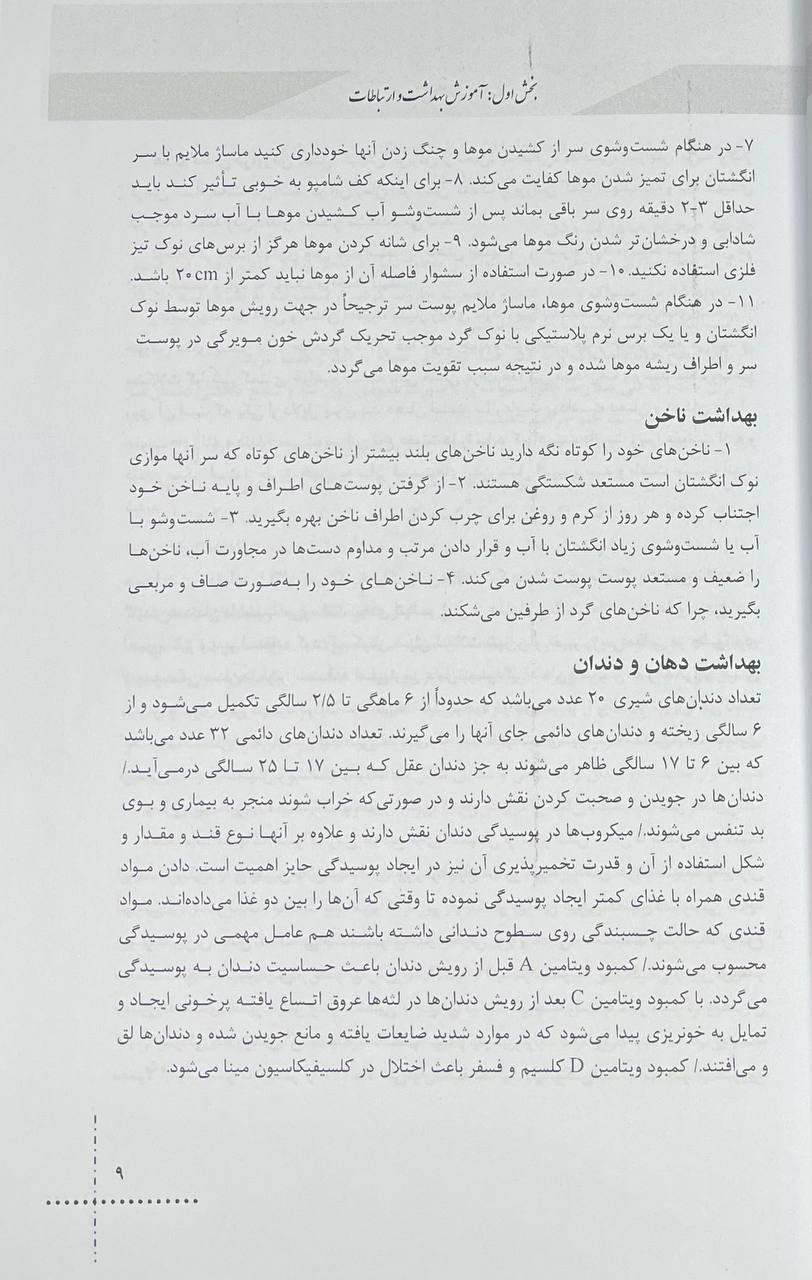 بخش اول: آموزش بهداشت و ارتباطات
۷- در هنگام شست‌وشوی سر از کشیدن موها و چنگ زدن آنها خودداری کنید ماساژ ملایم با سر
انگشتان برای تمیز شدن موها کفایت می‌کند. ۸- برای اینکه کف شامپو به خوبی تأثیر کند باید
حداقل ۳-۲ دقیقه روی سر باقی بماند پس از شست‌وشو آب کشیدن موها با آب سرد موجب
شادابی و درخشان‌تر شدن رنگ موها می‌شود. ۹- برای شانه کردن موها هرگز از برس‌های نوک تیز
فلزی استفاده نکنید. ۱۰- در صورت استفاده از سشوار فاصله آن از موها نباید کمتر از ۲۰ cm باشد.
۱۱- در هنگام شست‌وشوی موها، ماساژ ملایم پوست سر ترجیحاً در جهت رویش موها توسط نوک
انگشتان و یا یک برس نرم پلاستیکی با نوک گرد موجب تحریک گردش خون مویرگی در پوست
سر و اطراف ریشه موها شده و در نتیجه سبب تقویت موها می‌گردد.
بهداشت ناخن
۱- ناخن‌های خود را کوتاه نگه دارید ناخن‌های بلند بیشتر از ناخن‌های کوتاه که سر آنها موازی
نوک انگشتان است مستعد شکستگی هستند. ۲- از گرفتن پوست‌های اطراف و پایه ناخن خود
اجتناب کرده و هر روز از کرم و روغن برای چرب کردن اطراف ناخن بهره بگیرید. ۳- شست‌وشو با
آب یا شست‌وشوی زیاد انگشتان با آب و قرار دادن مرتب و مداوم دست‌ها در مجاورت آب، ناخن‌ها
را ضعیف و مستعد پوست پوست شدن می‌کند. ۴- ناخن‌های خود را به‌صورت صاف و مربعی
بگیرید، چرا که ناخن‌های گرد از طرفین می‌شکند.
بهداشت دهان و دندان
تعداد دندان‌های شیری ۲۰ عدد می‌باشد که حدوداً از ۶ ماهگی تا ۲/۵ سالگی تکمیل می‌شود و از
۶ سالگی ریخته و دندان‌های دائمی جای آنها را می‌گیرند. تعداد دندان‌های دائمی ۳۲ عدد می‌باشد
که بین ۶ تا ۱۷ سالگی ظاهر می‌شوند به جز دندان عقل که بین ۱۷ تا ۲۵ سالگی درمی‌آید./
دندان‌ها در جویدن و صحبت کردن نقش دارند و در صورتی‌که خراب شوند منجر به بیماری و بوی
بد تنفس می‌شوند./ میکروب‌ها در پوسیدگی دندان نقش دارند و علاوه بر آنها نوع قند و مقدار و
شکل استفاده از آن و قدرت تخمیرپذیری آن نیز در ایجاد پوسیدگی حایز اهمیت است. دادن مواد
قندی همراه با غذای کمتر ایجاد پوسیدگی نموده تا وقتی که آن‌ها را بین دو غذا می‌داده‌اند. مواد
قندی که حالت چسبندگی روی سطوح دندانی داشته باشند هم عامل مهمی در پوسیدگی
محسوب می‌شوند./ کمبود ویتامین A قبل از رویش دندان باعث حساسیت دندان به پوسیدگی
می‌گردد. با کمبود ویتامین C بعد از رویش دندان‌ها در لثه‌ها عروق اتساع یافته پرخونی ایجاد و
تمایل به خونریزی پیدا می‌شود که در موارد شدید ضایعات یافته و مانع جویدن شده و دندان‌ها لق
و می‌افتند./ کمبود ویتامین D کلسیم و فسفر باعث اختلال در کلسیفیکاسیون مینا می‌شود.
۹